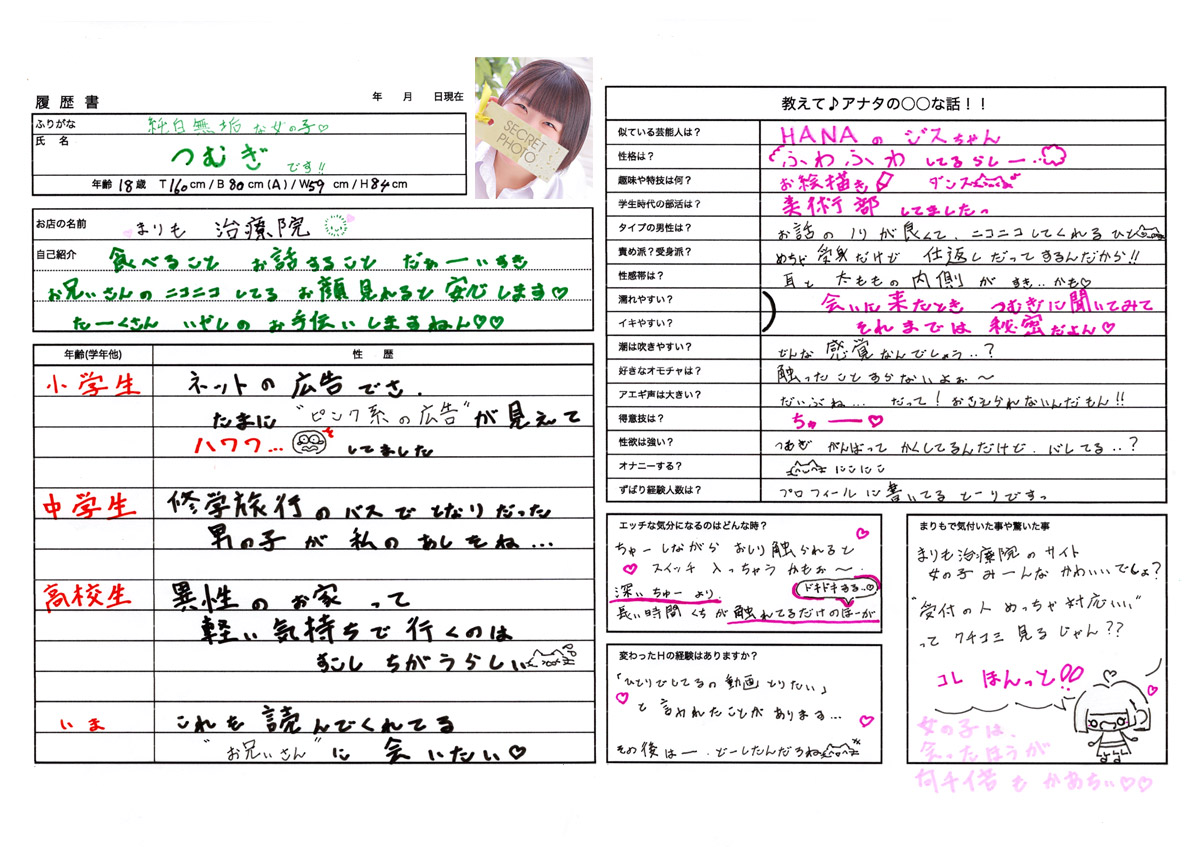 履歴書
年 月 日現在
ふりがな 純白無垢な女の子♡
氏 名 つむぎです!!
年齢 18歳 T160cm / B 80cm (A) / W59 cm / H84cm
SECRET PHOTO
お店の名前 まりも 治療院
自己紹介 食べること お話すること だぁーいすき
お兄さんのニコニコしてる お顔見れると安心します♡
たーくさん いやしの お手伝いしますねん♡♡
年齢(学年他) 性 歴
いま これも読んでくれてる
"お兄さん"に 会いたい♡
教えて♪アナタの○○な話！！
似ている芸能人は？ HANAの ジスちゃん
性格は？ ふわふわ してるらしー..
趣味や特技は何？ お絵描き ダンス
学生時代の部活は？ 美術部 してましたっ
タイプの男性は？ お話のノリが良くて、ニコニコしてくれるひと
責め派？受身派？ めちゃ受身だけど 仕返しだってするんだから!!
性感帯は？ 耳と 太ももの内側が すき..かも♡
濡れやすい？ 会いに来たとき つむぎに聞いてみて
イキやすい？ それまでは 秘密だよん♡
潮は吹きやすい？ どんな感覚なんでしょう..?
好きなオモチャは？ 触ったことすらないよぉ〜
アエギ声は大きい？ だいぶね... だって！おさえられないんだもん!!
得意技は？ ちゅーー♡
性欲は強い？ つむぎ がんばって かくしてるんだけど、バレてる..?
オナニーする？ にこにこ
ずばり経験人数は？ プロフィールに書いてるとーりですっ
エッチな気分になるのはどんな時？
ちゅーしながら おしり触られると
スイッチ 入っちゃうかもぉ〜.
深いちゅー より、
ドキドキする..♡
長い時間くちが触れてるだけのほーが
変わったHの経験はありますか？
「ひとりでしてるの動画とりたい」
と言われたことがあります...
その後はー、どーしたんだろね
まりもで気付いた事や驚いた事
まりも治療院のサイト
女の子みーんな かわいいでしょ?
"受付の人 めっちゃ対応いい"
って クチコミ 見るじゃん??
コレ ほんっと!!
女の子は、
会ったほうが
何千倍も かあちぃ♡♡